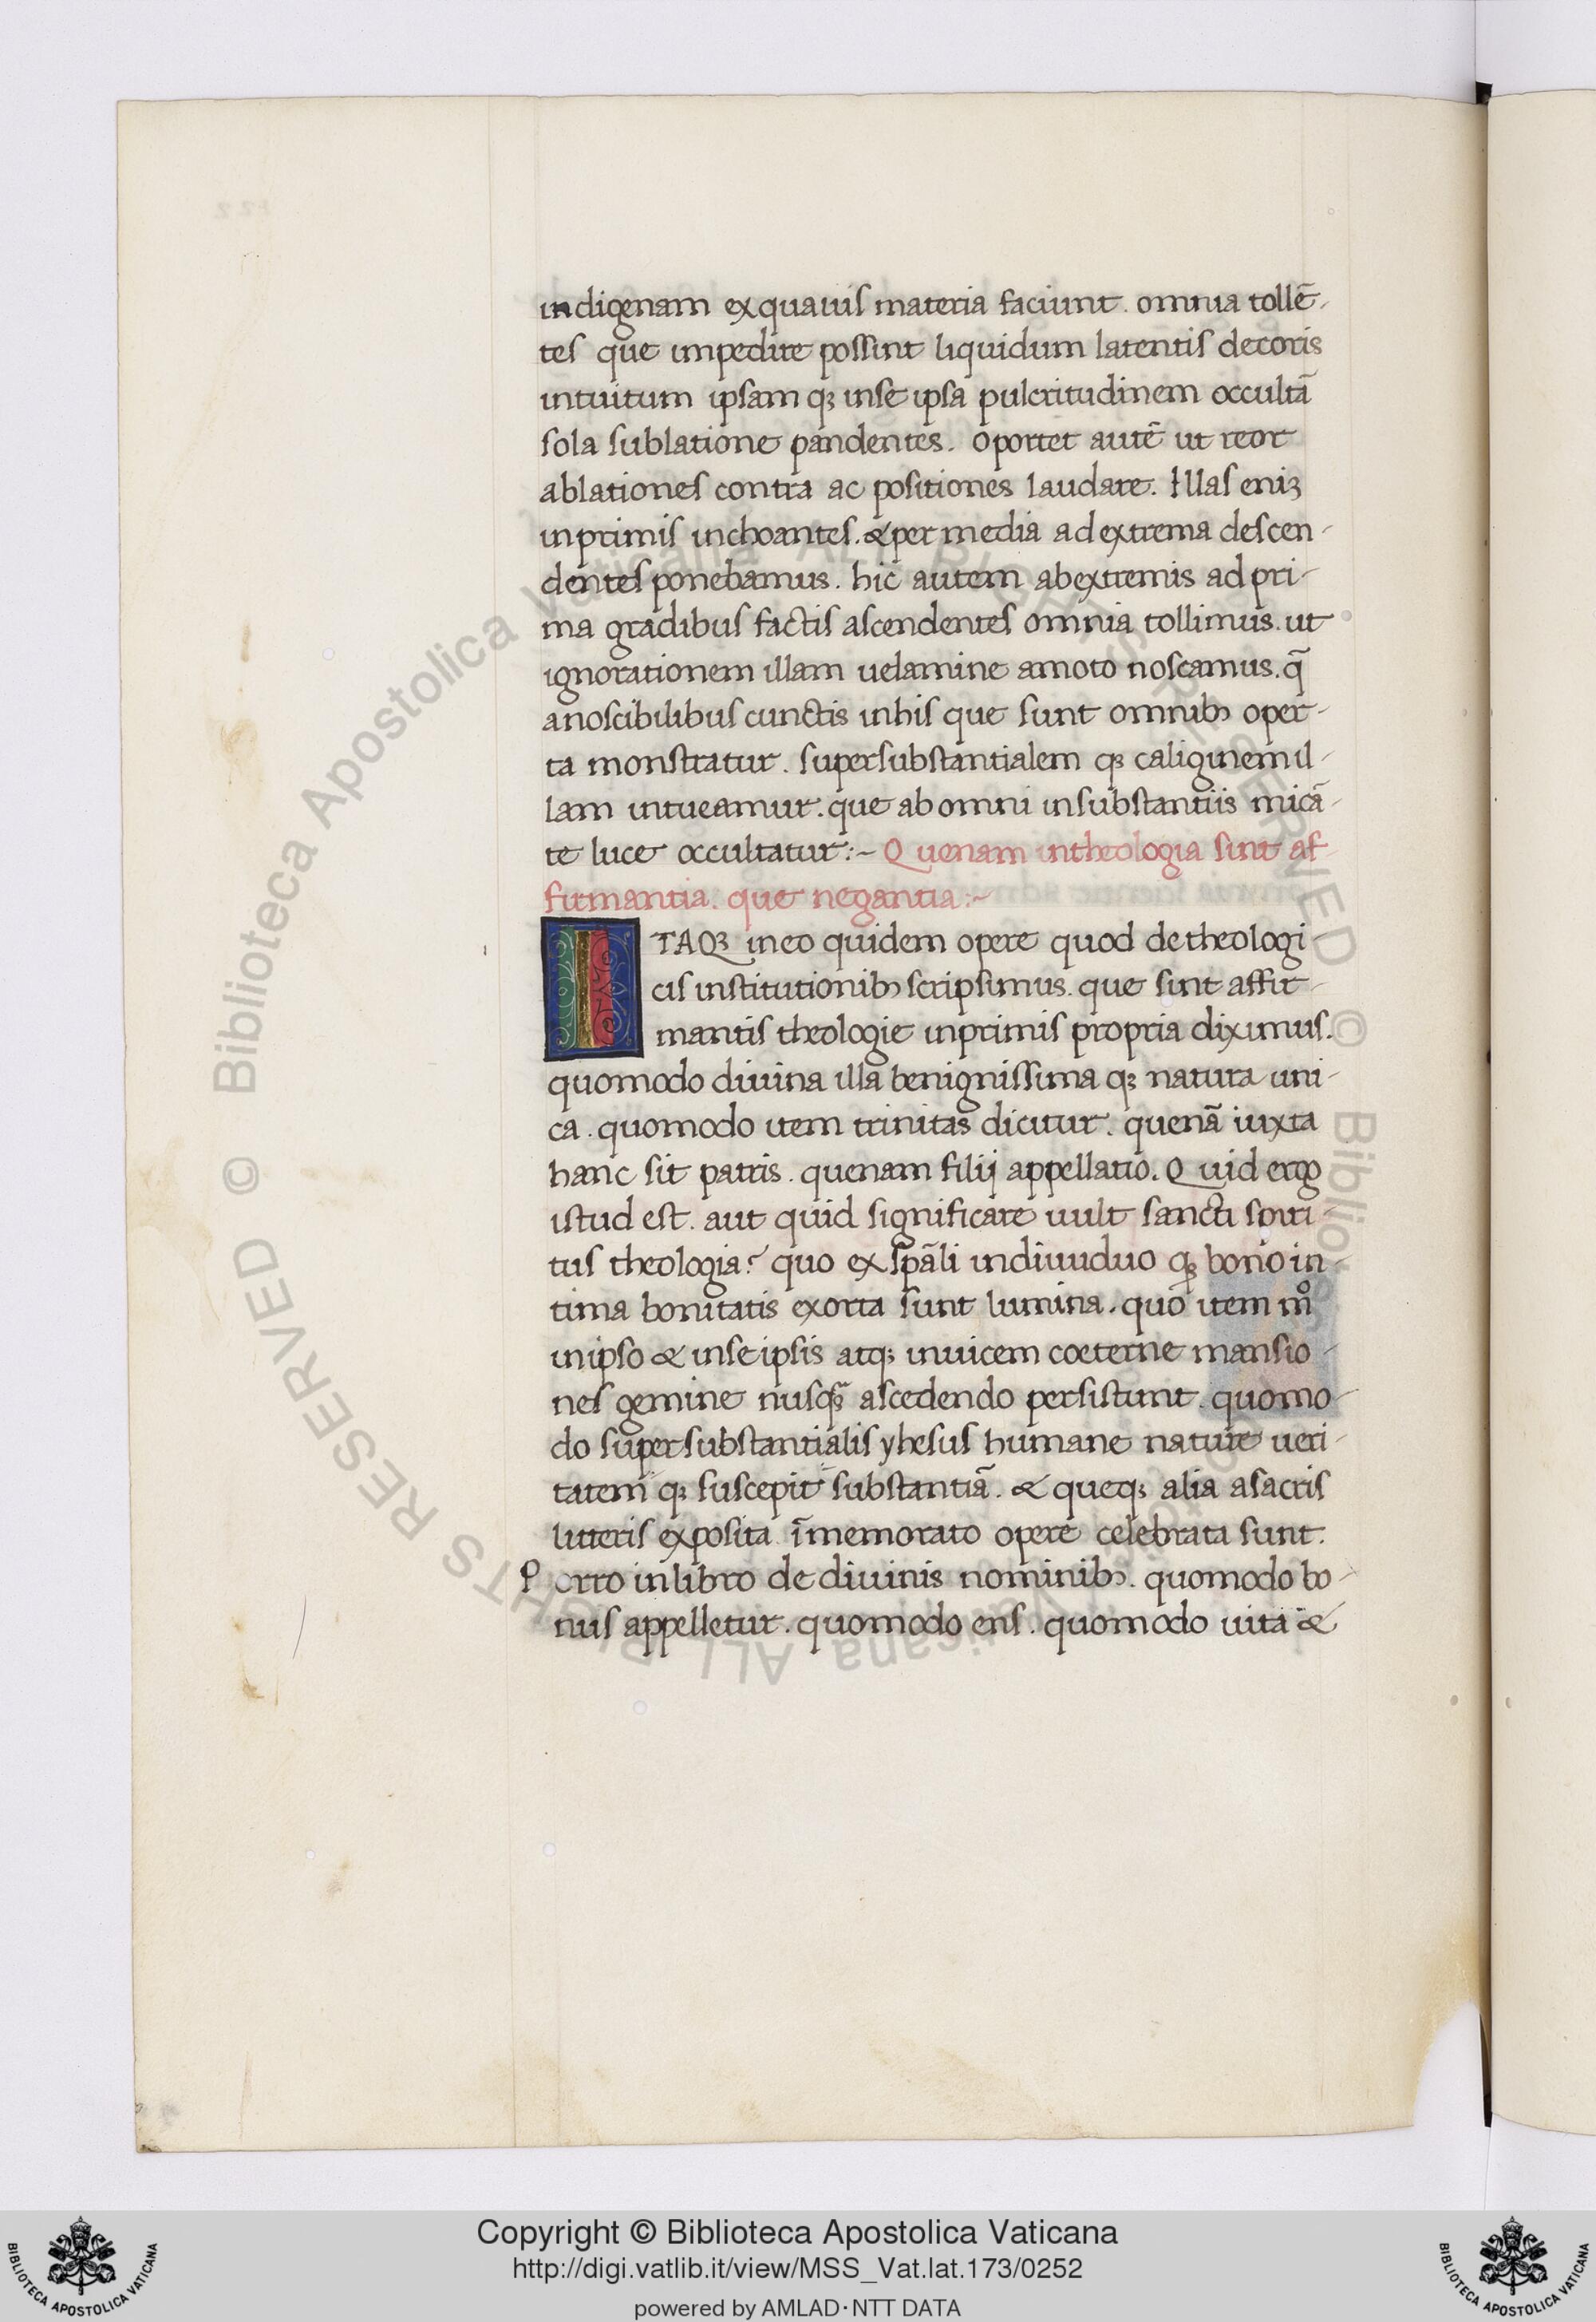 indigenam ex quauis materia faciunt. omnia tollē-
tes que impedire possint liquidum latentis decoris
intuitum ipsam qꝫ inse ipsa pulcritudinem occultā
sola sublatione pandentes. oportet autē ut reor
ablationes contra ac positiones laudare. Illas eniꝫ
inprimis inchoantes. & per media ad extrema descen-
dentes ponebamus. hic autem abextremis ad pri-
ma gradibus factis ascendentes omnia tollimus. ut
ignorationem illam uelamine amoto noscamus. q̄
anoscibilibus cunctis inhis que sunt omnibꝫ oper-
ta monstratur. supersubstantialem qꝫ caliginem il-
lam intueamur. que ab omni insubstantiis micā-
te luce occultatur:~ Quenam intheologia sint af
firmantia. que negantia:~
ITAQꝫ ineo quidem opere quod de theologi-
cis institutionibꝫ scripsimus. que sint affir-
mantis theologie inprimis propria diximus.
quomodo diuina illa benignissima qꝫ natura uni-
ca. quomodo item trinitas dicitur. quenā iuxta
hanc sit patris. quenam filij appellatio. Quid ergo
istud est. aut quid significare uult sancti spiri-
tus theologia? quo ex sp̄ali indiuiduo qꝫ bono in-
tima bonitatis exorta sunt lumina. quo item mº
inipso & inseipsis atqꝫ inuicem coeterne mansio-
nes gemine nusqꝫ̄ ascedendo persistunt. quomo-
do supersubstantialis yhesus humane nature ueri-
tatem qꝫ suscepit substantiā. & queqꝫ alia asacris
litteris exposita ī memorato opere celebrata sunt.
Porro inlibro de diuinis nominibꝫ. quomodo bo-
nus appelletur. quomodo ens. quomodo uita &
Copyright © Biblioteca Apostolica Vaticana
http://digi.vatlib.it/view/MSS_Vat.lat.173/0252
powered by AMLAD·NTT DATA